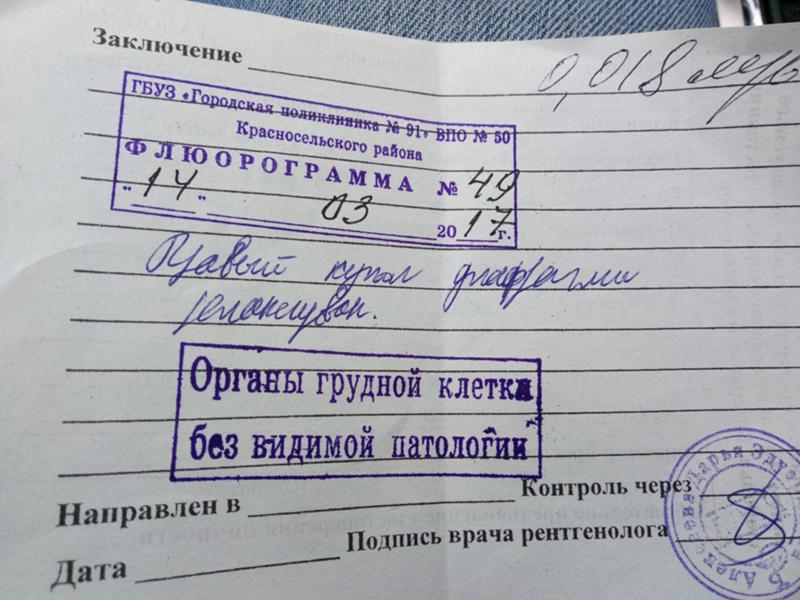 Заключение
0,018 мзв
ГБУЗ «Городская поликлиника № 91» ВПО № 50
Красносельского района
ФЛЮОРОГРАММА № 49
"14" 03 2017 г.
Правый купол диафрагмы
релаксирован.
Органы грудной клетки
без видимой патологии
Направлен в
Контроль через
Подпись врача рентгенолога
Дата